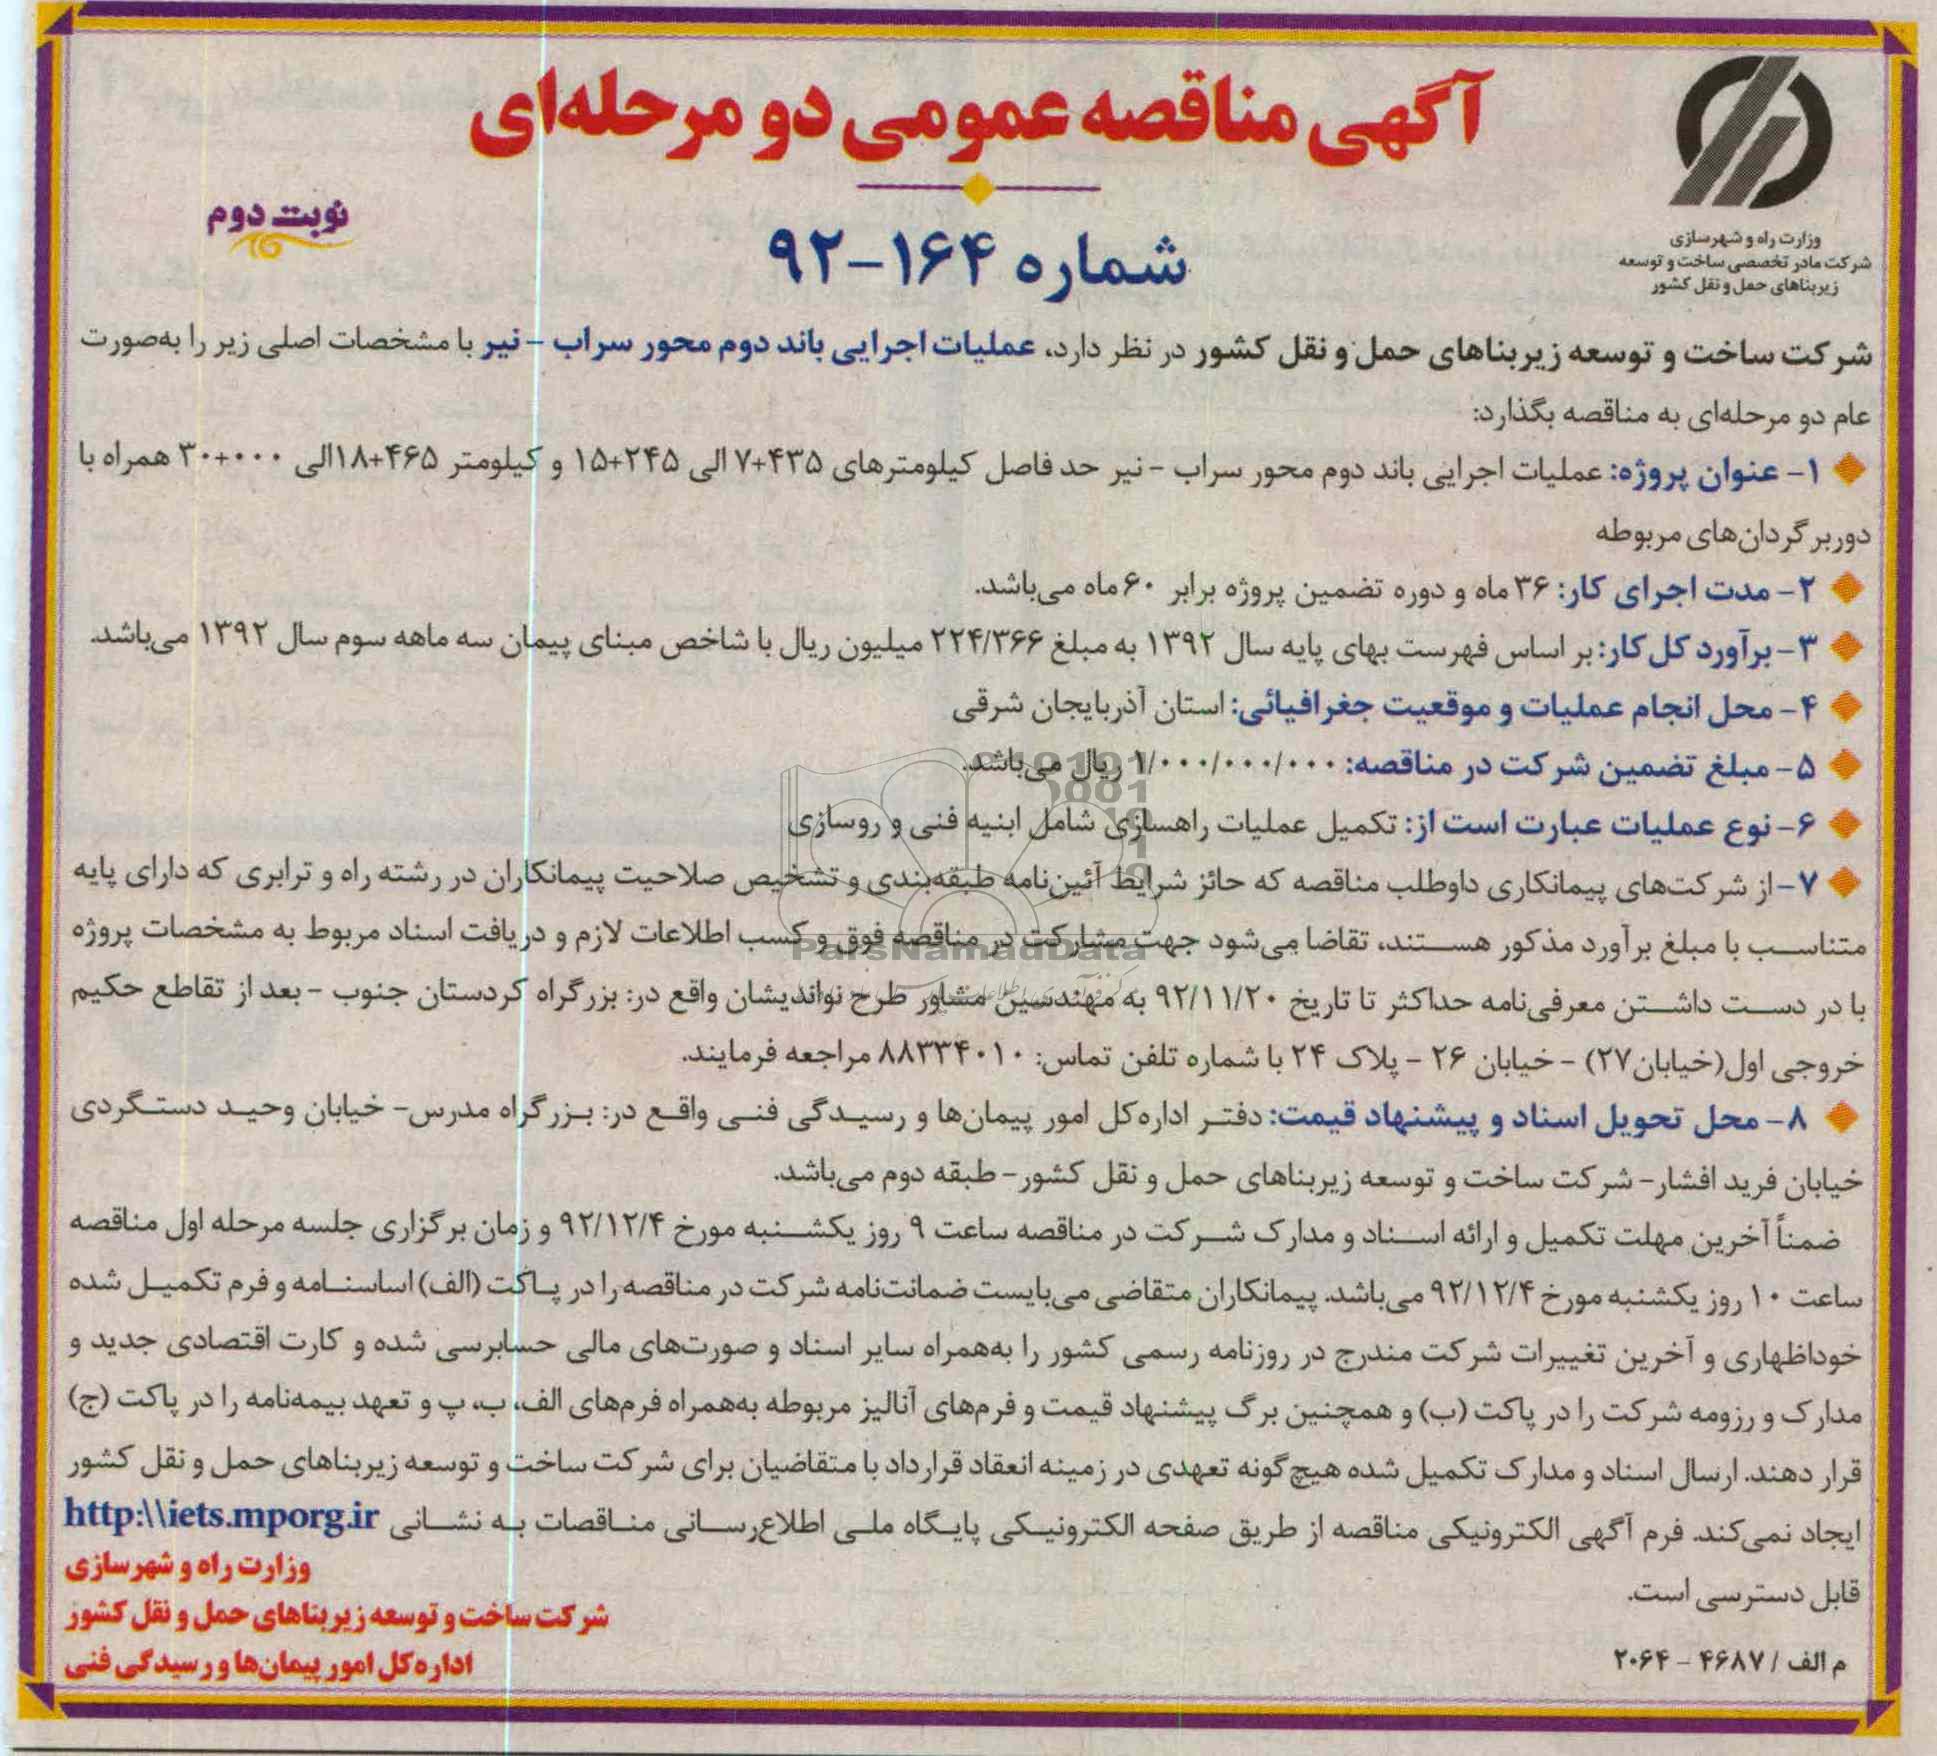 آگهی مناقصه عمومی دو مرحله‌ای
وزارت راه و شهرسازی
شرکت مادر تخصصی ساخت و توسعه
زیربناهای حمل و نقل کشور
نوبت دوم
شماره ۱۶۴-۹۲
شرکت ساخت و توسعه زیربناهای حمل و نقل کشور در نظر دارد، عملیات اجرایی باند دوم محور سراب - نیر با مشخصات اصلی زیر را به‌صورت
عام دو مرحله‌ای به مناقصه بگذارد:
۱- عنوان پروژه: عملیات اجرایی باند دوم محور سراب - نیر حد فاصل کیلومترهای ۴۳۵+۷ الی ۲۴۵+۱۵ و کیلومتر ۴۶۵+۱۸الی ۰۰۰+۳۰ همراه با
دوربرگردان‌های مربوطه
۲- مدت اجرای کار: ۳۶ ماه و دوره تضمین پروژه برابر ۶۰ ماه می‌باشد.
۳- برآورد کل کار: بر اساس فهرست بهای پایه سال ۱۳۹۲ به مبلغ ۲۲۴/۳۶۶ میلیون ریال با شاخص مبنای پیمان سه ماهه سوم سال ۱۳۹۲ می‌باشد.
۴- محل انجام عملیات و موقعیت جغرافیائی: استان آذربایجان شرقی
۵- مبلغ تضمین شرکت در مناقصه: ۱/۰۰۰/۰۰۰/۰۰۰ ریال می‌باشد.
۶- نوع عملیات عبارت است از: تکمیل عملیات راهسازی شامل ابنیه فنی و روسازی
۷- از شرکت‌های پیمانکاری داوطلب مناقصه که حائز شرایط آئین‌نامه طبقه‌بندی و تشخیص صلاحیت پیمانکاران در رشته راه و ترابری که دارای پایه
متناسب با مبلغ برآورد مذکور هستند، تقاضا می‌شود جهت مشارکت در مناقصه فوق و کسب اطلاعات لازم و دریافت اسناد مربوط به مشخصات پروژه
ParsNamadData
با در دست داشتن معرفی‌نامه حداکثر تا تاریخ ۹۲/۱۱/۲۰ به مهندسین مشاور طرح نواندیشان واقع در: بزرگراه کردستان جنوب - بعد از تقاطع حکیم
خروجی اول(خیابان۲۷) - خیابان ۲۶ - پلاک ۲۴ با شماره تلفن تماس: ۸۸۳۳۴۰۱۰ مراجعه فرمایند.
۸- محل تحویل اسناد و پیشنهاد قیمت: دفتر اداره‌کل امور پیمان‌ها و رسیدگی فنی واقع در: بزرگراه مدرس- خیابان وحید دستگردی
خیابان فرید افشار- شرکت ساخت و توسعه زیربناهای حمل و نقل کشور- طبقه دوم می‌باشد.
ضمناً آخرین مهلت تکمیل و ارائه اسناد و مدارک شرکت در مناقصه ساعت ۹ روز یکشنبه مورخ ۹۲/۱۲/۴ و زمان برگزاری جلسه مرحله اول مناقصه
ساعت ۱۰ روز یکشنبه مورخ ۹۲/۱۲/۴ می‌باشد. پیمانکاران متقاضی می‌بایست ضمانت‌نامه شرکت در مناقصه را در پاکت (الف) اساسنامه و فرم تکمیل شده
خوداظهاری و آخرین تغییرات شرکت مندرج در روزنامه رسمی کشور را به‌همراه سایر اسناد و صورت‌های مالی حسابرسی شده و کارت اقتصادی جدید و
مدارک و رزومه شرکت را در پاکت (ب) و همچنین برگ پیشنهاد قیمت و فرم‌های آنالیز مربوطه به‌همراه فرم‌های الف، ب، پ و تعهد بیمه‌نامه را در پاکت (ج)
قرار دهند. ارسال اسناد و مدارک تکمیل شده هیچ‌گونه تعهدی در زمینه انعقاد قرارداد با متقاضیان برای شرکت ساخت و توسعه زیربناهای حمل و نقل کشور
ایجاد نمی‌کند. فرم آگهی الکترونیکی مناقصه از طریق صفحه الکترونیکی پایگاه ملی اطلاع‌رسانی مناقصات به نشانی http:\\iets.mporg.ir
قابل دسترسی است.
وزارت راه و شهرسازی
شرکت ساخت و توسعه زیربناهای حمل و نقل کشور
اداره‌کل امور پیمان‌ها و رسیدگی فنی
م الف / ۴۶۸۷ - ۲۰۶۴